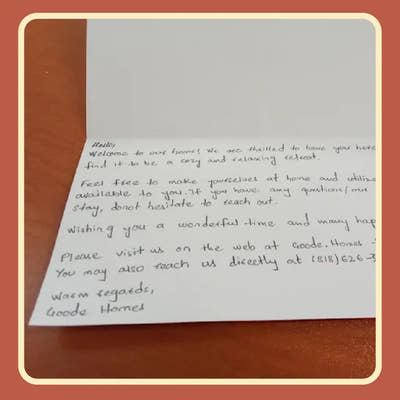 Hello,
Welcome to our home! We are thrilled to have you here
find it to be a cozy and relaxing retreat.
Feel free to make yourselves at home and utilize
available to you. If you have any questions/
stay, donot hesitate to reach out.
Wishing you a wonderful time and many hap
Please visit us on the web at Goode.Homes
You may also reach us directly at (818) 626-3
Warm regards,
Goode Homes